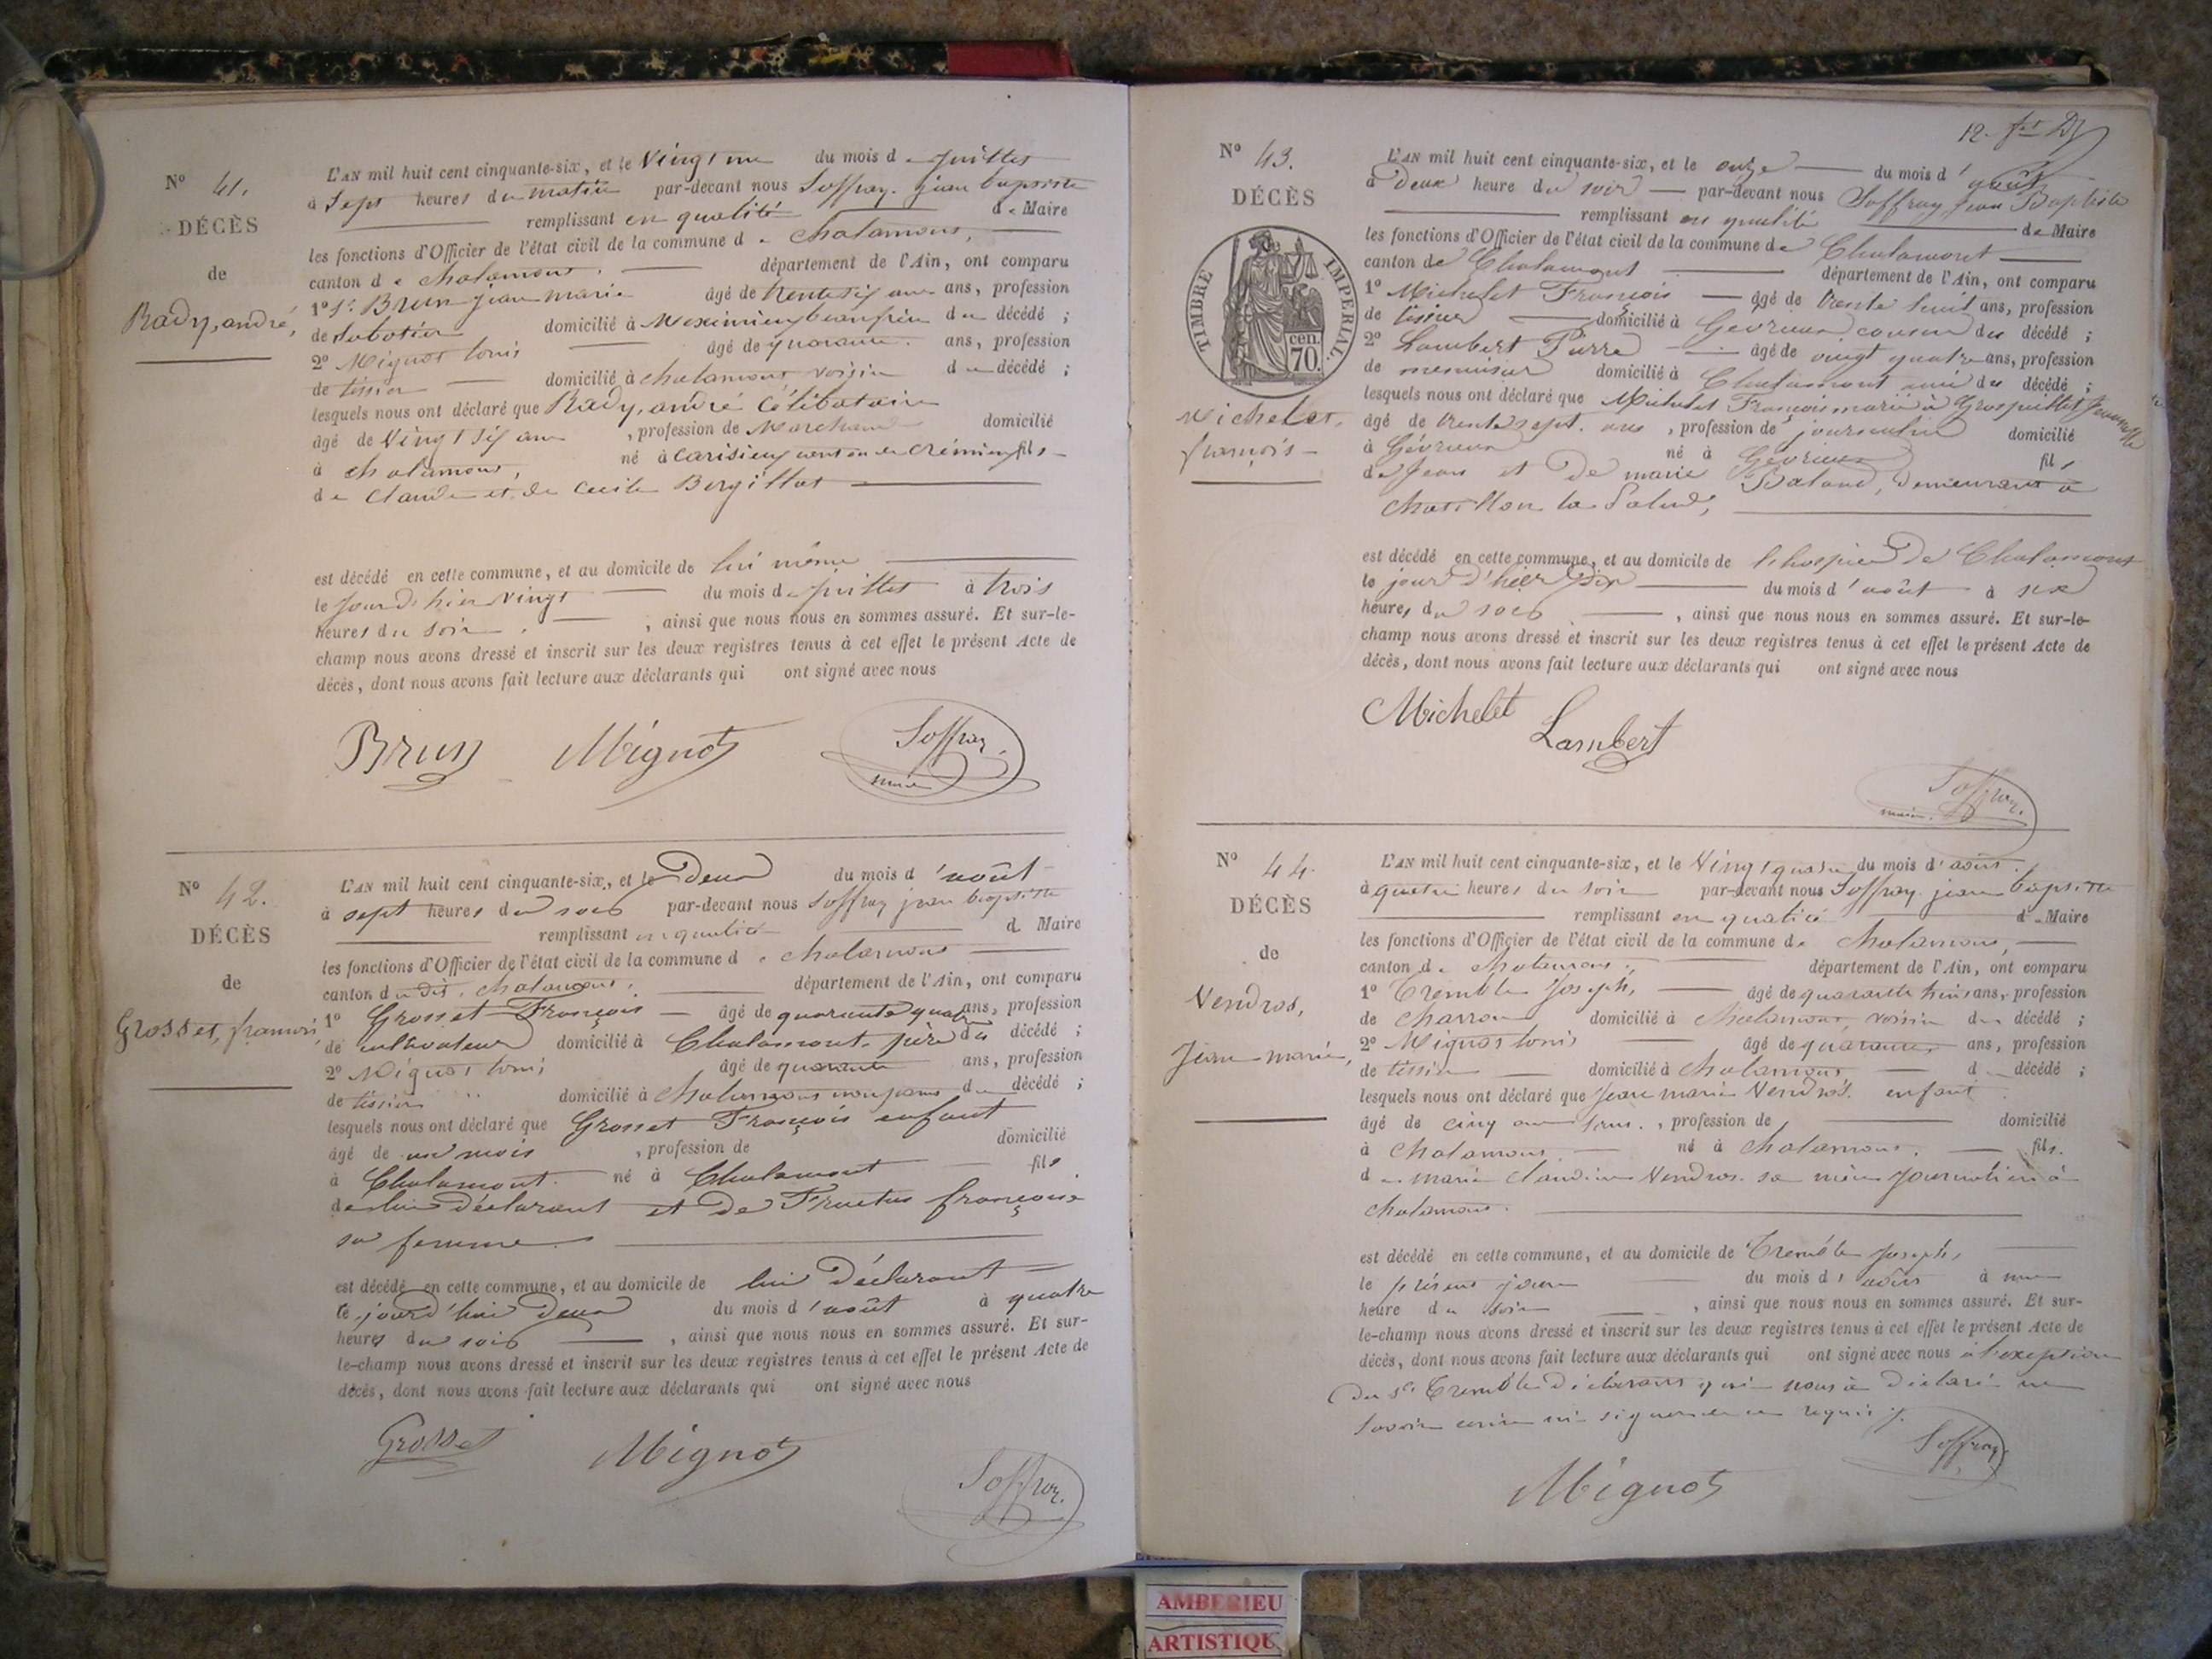 N° 41.
DÉCÈS
de
Rady, andré,
L'AN mil huit cent cinquante-six, et le Vingt un du mois de juillet
à Sept heures du matin par-devant nous Soffray jean baptiste
remplissant en qualité de Maire
les fonctions d'Officier de l'état civil de la commune de chalamont,
canton de chalamont. département de l'Ain, ont comparu
1° Sr. Brun jean marie âgé de trente six ans ans, profession
de sabotier domicilié à Meximieux beaufrère du décédé ;
2° Mignot louis âgé de quarante. ans, profession
de tissier domicilié à chalamont voisin du décédé ;
lesquels nous ont déclaré que Rady, andré Célibataire
âgé de Vingt six ans , profession de Marchand domicilié
à chalamont, né à carisieu canton de crémieu fils
de claude et de cecile Bergillot
est décédé en cette commune, et au domicile de lui même
le jour d'hier vingt du mois de juillet à trois
heures du soir. , ainsi que nous nous en sommes assuré. Et sur-le-
champ nous avons dressé et inscrit sur les deux registres tenus à cet effet le présent Acte de
décès, dont nous avons fait lecture aux déclarants qui ont signé avec nous
Brun Mignot Soffray
maire
N° 42.
DÉCÈS
de
Grosset, françois,
L'AN mil huit cent cinquante-six, et le Deux du mois d'août
à sept heures du soir par-devant nous Soffray jean baptiste
remplissant en qualité d Maire
les fonctions d'Officier de l'état civil de la commune de chalamont
canton du dit. chalamont. département de l'Ain, ont comparu
1° Grosset François âgé de quarante quatre ans, profession
de cultivateur domicilié à Chalamont père du décédé ;
2° Mignot louis âgé de quarante ans, profession
de tissier domicilié à chalamont non parent du décédé ;
lesquels nous ont déclaré que Grosset François enfant
âgé de un mois , profession de domicilié
à Chalamont né à Chalamont fils
de lui déclarant et de Fructus françoise
sa femme
est décédé en cette commune, et au domicile de lui Déclarant
le jourd'hui Deux du mois d'août à quatre
heures du soir , ainsi que nous nous en sommes assuré. Et sur-
le-champ nous avons dressé et inscrit sur les deux registres tenus à cet effet le présent Acte de
décès, dont nous avons fait lecture aux déclarants qui ont signé avec nous
Grosset Mignot Soffray
12.
N° 43.
DÉCÈS
TIMBRE IMPÉRIAL.
cen.
70.
Michelet,
françois
L'AN mil huit cent cinquante-six, et le onze du mois d'août
à Deux heure du soir par-devant nous Soffray Jean Baptiste
remplissant en qualité de Maire
les fonctions d'Officier de l'état civil de la commune de Chalamont
canton de Chalamont département de l'Ain, ont comparu
1° Michelet François âgé de trente huit ans, profession
de tissier domicilié à Gevrieux cousin du décédé ;
2° Lambert Pierre âgé de vingt quatre ans, profession
de menuisier domicilié à Chalamont ami du décédé ;
lesquels nous ont déclaré que Michelet François marié à Grosjuillet
âgé de trente sept. ans , profession de journalier domicilié
à Gévrieux né à Gevrieux fils
de Jean et De marie Baland, Demeurant à
Chatillon la Palud,
est décédé en cette commune, et au domicile de l'hospice De Chalamont
le jour d'hier Dix du mois d'août à six
heures du soir , ainsi que nous nous en sommes assuré. Et sur-le-
champ nous avons dressé et inscrit sur les deux registres tenus à cet effet le présent Acte de
décès, dont nous avons fait lecture aux déclarants qui ont signé avec nous
Michelet
Lambert
Soffray
maire.
N° 44.
DÉCÈS
de
Vendros,
Jean-marie,
L'AN mil huit cent cinquante-six, et le Vingt quatre du mois d'août.
à quatre heures du soir par-devant nous Soffray jean baptiste
remplissant en qualité de Maire
les fonctions d'Officier de l'état civil de la commune de chalamont,
canton de chalamont, département de l'Ain, ont comparu
1° Tremble Joseph, âgé de quarante huit ans, profession
de charron domicilié à chalamont, voisin du décédé ;
2° Mignot louis âgé de quarante ans, profession
de tissier domicilié à chalamont d décédé ;
lesquels nous ont déclaré que Jean marie Vendros. enfant
âgé de cinq ans , profession de domicilié
à chalamont né à chalamont, fils.
de marie claudine Vendros. sa mère journalière à
chalamont.
est décédé en cette commune, et au domicile de Tremble Joseph,
le présent jour du mois d'août à une
heure du soir , ainsi que nous nous en sommes assuré. Et sur-
le-champ nous avons dressé et inscrit sur les deux registres tenus à cet effet le présent Acte de
décès, dont nous avons fait lecture aux déclarants qui ont signé avec nous à l'exeption
Du sr. Tremble Déclarant qui nous à Déclaré ne
savoir écrire ni signer de ce requis.
Soffray
Mignot
AMBERIEU
ARTISTIQU